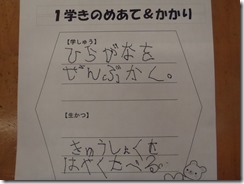 1学きのめあて&かかり
【学しゅう】
ひらがなを
ぜんぶかく。
【生かつ】
きゅうしょくを
はやくたべる。